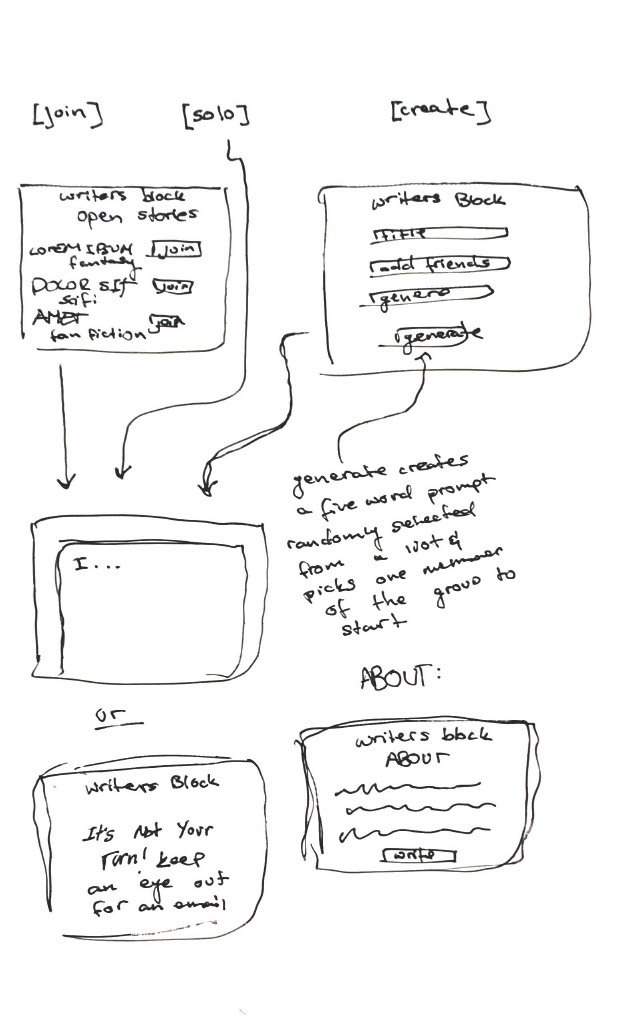 [join]
[solo]
[create]
writers block
open stories
LOREM IBUM
join
fantasy
DOLOR SIT
join
scifi
AMET
join
fan fiction
writers Block
title
add friends
genero
generate
generate creates
a five word prompt
randomly selected
from a list &
picks one member
of the group to
start
I...
or
writers Block
It's Not Your
Turn! keep
an eye out
for an email
ABOUT:
writers block
ABOUT
write